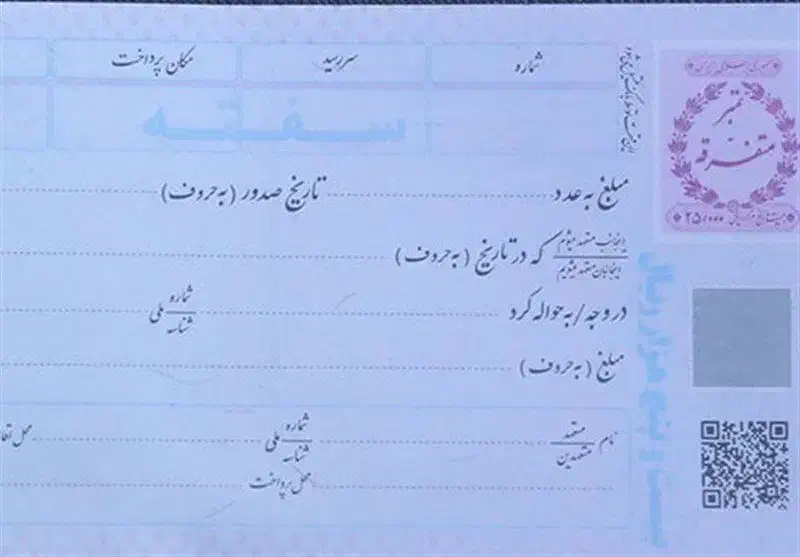 شماره
سررسید
مکان پرداخت
سفته
جمهوری اسلامی ایران
تمبر
متفرقه
۲۵/۰۰۰
مبلغ به عدد ........ تاریخ صدور (به حروف) ........
اینجانب متعهد میشوم
اینجانبان متعهد میشویم
که در تاریخ (به حروف) ........
در وجه / به حواله کرد ........ شماره ملی
شناسه
مبلغ (به حروف) ........
نام متعهد ........ شماره ملی ........
متعهدین
شناسه
محل پرداخت ........
بیست و پنج هزار ریال